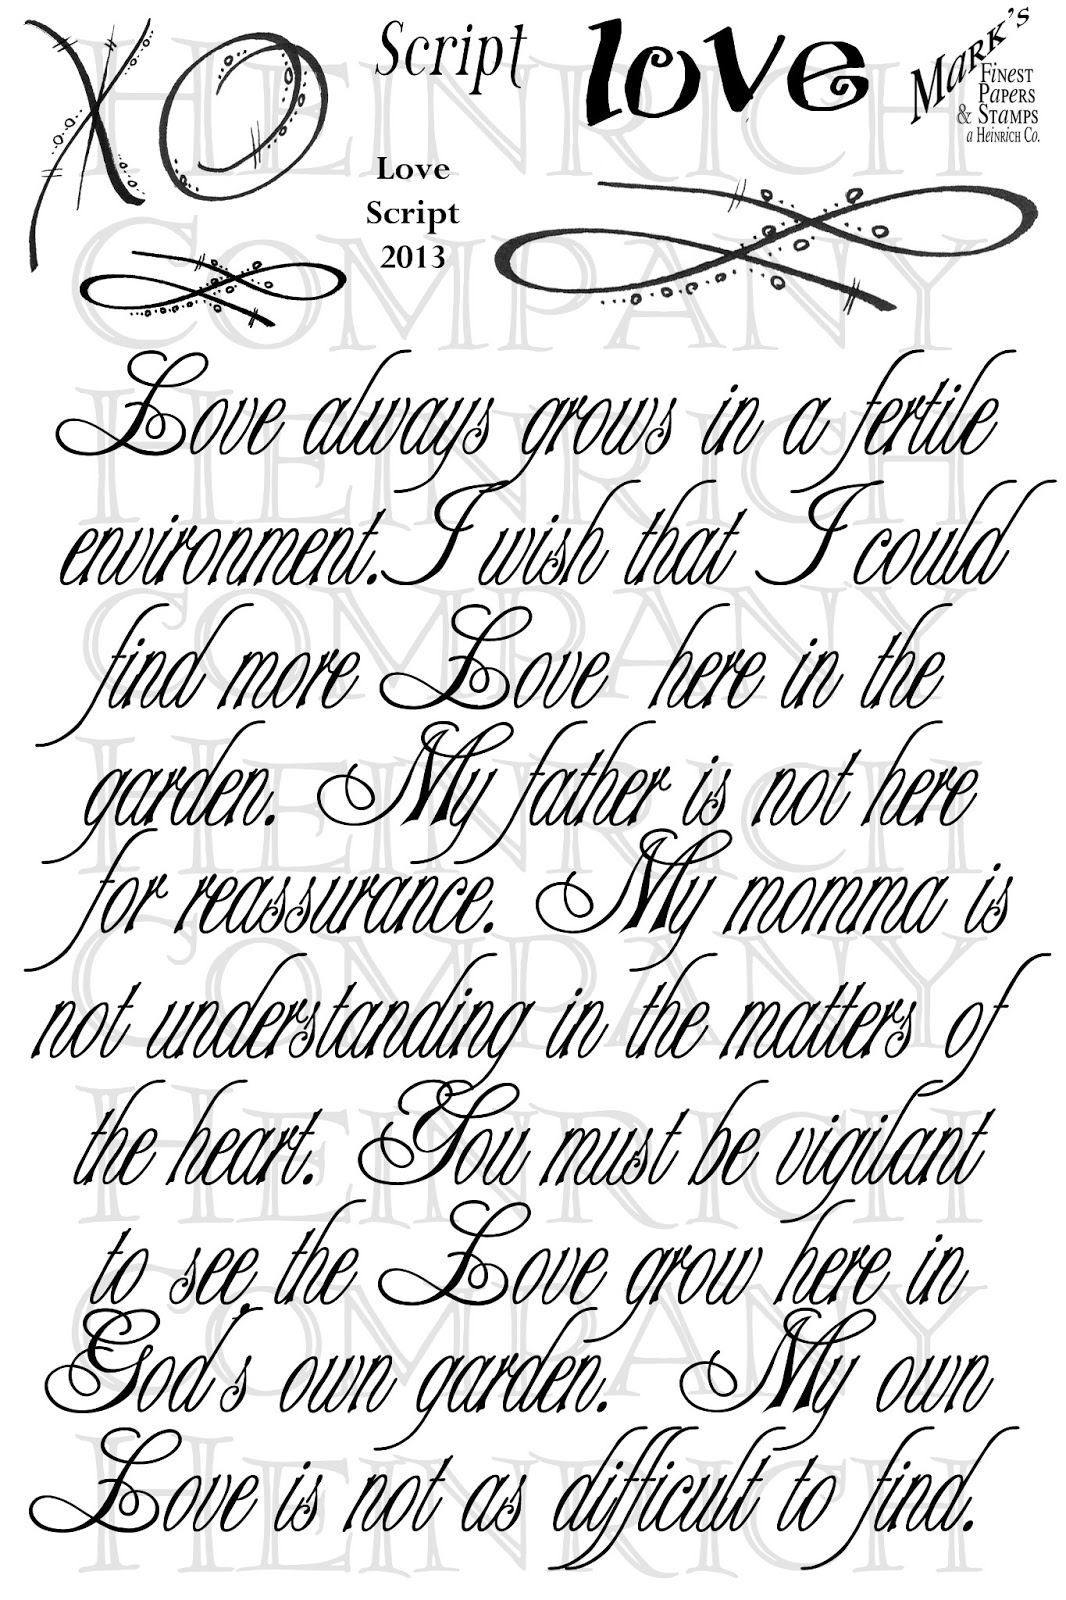 XO
Script
love
Mark's
Finest
Papers
& Stamps
a Heinrich Co.
Love
Script
2013
Love always grows in a fertile
environment. I wish that I could
find more Love here in the
garden. My father is not here
for reassurance. My momma is
not understanding in the matters of
the heart. You must be vigilant
to see, the Love grow here in
God's own garden. My own
Love is not as difficult to find.
Heinrich
Company
Heinrich
Company
Heinrich
Company
Heinrich
Company
Heinrich